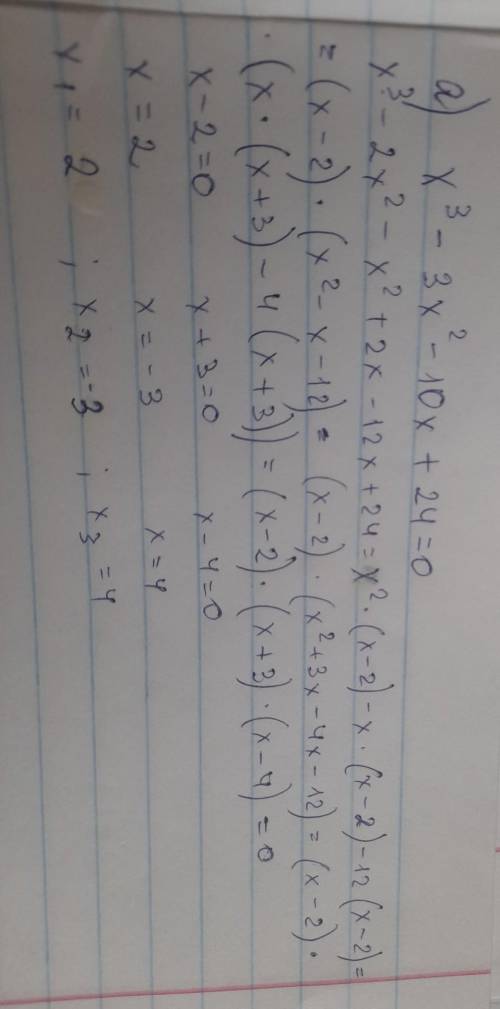 a) x³ - 3x² - 10x + 24 = 0
x³ - 2x² - x² + 2x - 12x + 24 = x² · (x - 2) - x · (x - 2) - 12 (x - 2) =
= (x - 2) · (x² - x - 12) = (x - 2) · (x² + 3x - 4x - 12) = (x - 2) ·
· (x · (x + 3) - 4 (x + 3)) = (x - 2) · (x + 3) · (x - 4) = 0
x - 2 = 0 x + 3 = 0 x - 4 = 0
x = 2 x = -3 x = 4
x1 = 2 ; x2 = -3 ; x3 = 4